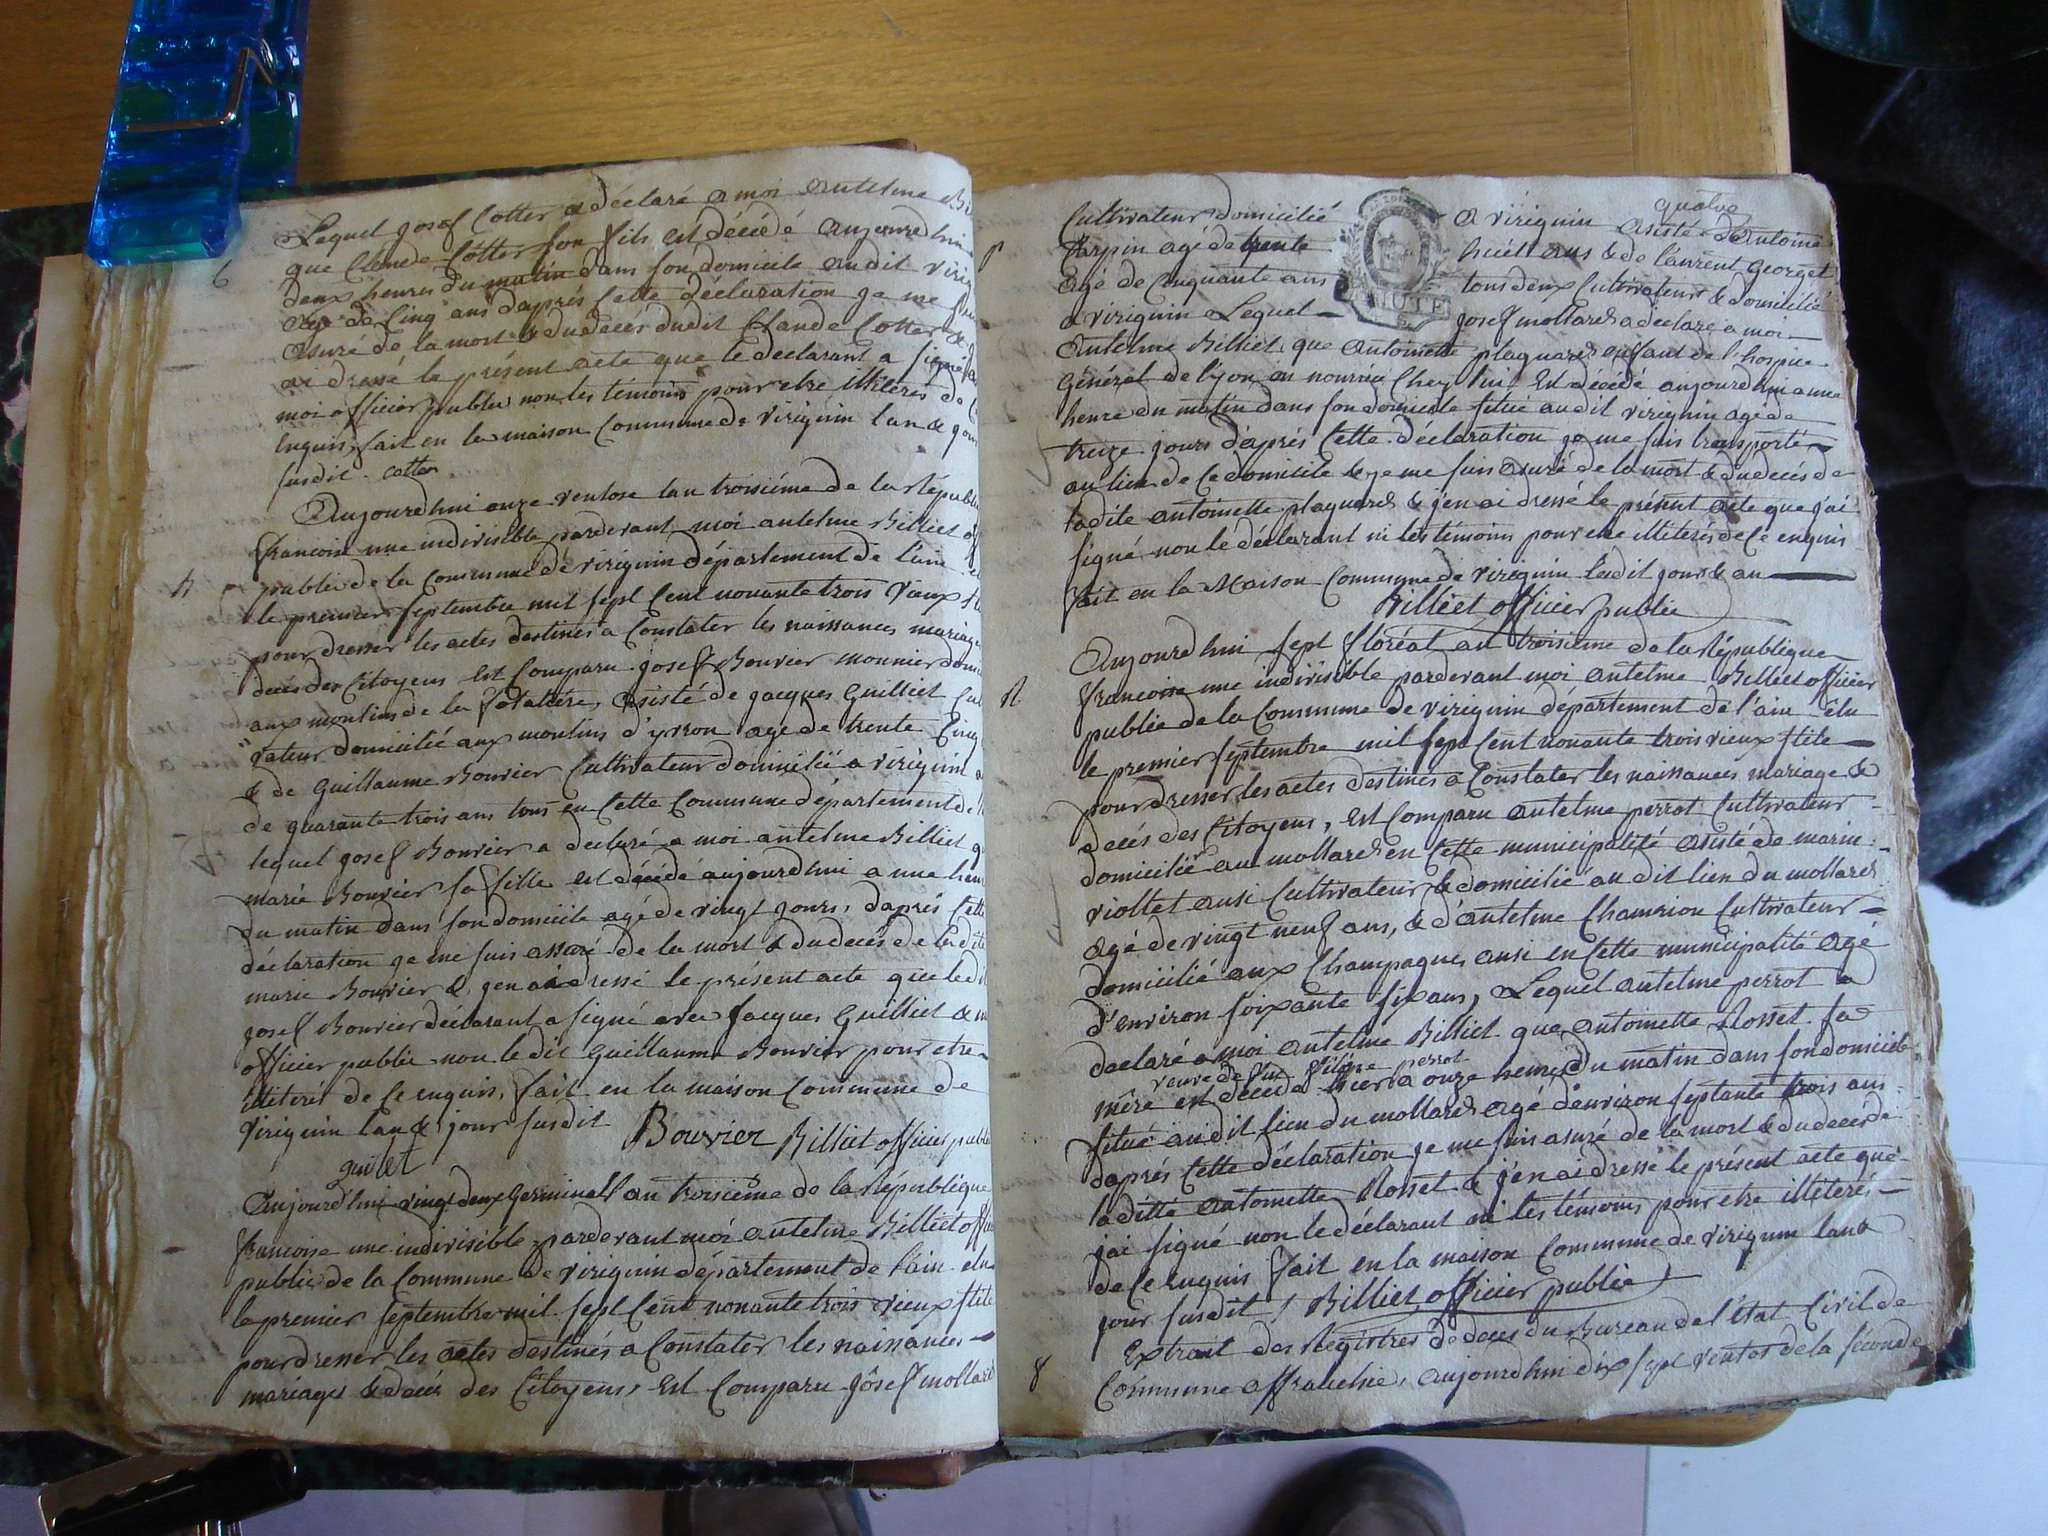 Lequel josef Cotter a déclaré a moi antelme
que Claude Cotter son fils est décédé aujourdhui
deux heures du matin dans son domicile audit
agé de Cinq ans daprés Cette déclaration je me
asuré de la mort & du decés dudit Claude Cotter &
ai dressé le présent acte que le declarant a signé
moi officier public non les témoins pour etre illiterés de
enquis, fait en la maison Commune de virignin lan &
susdit. cotter
Aujourdhui onze ventose lan troisiéme de la
francoise une indivisible pardevant moi antelme Billiet
public de la Commune de virignin département de l'ain
le premier septembre mil sept Cent nonante trois vieux
pour dresser les actes destinés a Constater les naissances
decés des Citoyens est Comparu josef Bouvier monnier
aux moulins de la asisté de jacques Guilliet
vateur domicilié aux moulins d'yvron agé de trente
& de Guillaume Bouvier Cultivateur domicilié a virignin
de quarante trois ans tous en Cette Commune département de
lequel josef Bouvier a declaré a moi antelme Billiet
marie Bouvier sa fille est décédé aujourdhui a une
du matin dans son domicile agé de vingt jours, daprés Cette
déclaration je me suis assuré de la mort & du decés de ladite
marie Bouvier & jen ai dressé le présent acte que ledit
josef Bouvier déclarant a signé avec jacques Guilliet &
officier public non le dit Guillaume Bouvier pour etre
illiteré de Ce enquis, fait en la maison Commune de
virignin lan & jour susdit Bouvier Billiet officier public
guillet
Aujourdhui vingt deux Germinal an troisiéme de la République
francoise une indivisible pardevant moi antelme Billiet
public de la Commune de virignin département de l'ain elu
le premier septembre mil sept Cent nonante trois vieux stile
pour dresser les actes destinés a Constater les naissances
mariages & decés des Citoyens, est Comparu josef mollard
Cultivateur domicilié a virignin asisté d'antoine
quatre
agé de trente huit ans & de laurent Georget
agé de Cinquante ans tous deux Cultivateurs & domicilié
a virignin Lequel josef mollard a declaré a moi
Antelme Billiet que antoinette plaquard enfant de l'hospice
Général de lyon en nourrice Chez lui, est décédé aujourdhui a une
heure du matin dans son domicile situé audit virignin agé de
treize jours daprés Cette déclaration je me suis transporté
au lieu de Ce domicile & je me suis asuré de la mort & du decés de
ladite antoinette plaquard & j'en ai dressé le présent acte que j'ai
signé non le déclarant ni les témoins pour etre illiterés de Ce enquis
fait en la Maison Commune de virignin ledit jour & an
Billiet officier public
Aujourdhui sept floréal an troisieme de la République
francoise une indivisible pardevant moi antelme Billiet officier
public de la Commune de virignin département de l'ain élu
le premier septembre mil sept Cent nonante trois vieux stile
pour dresser les actes destinés a Constater les naissances mariage &
decés des Citoyens, est Comparu antelme perrot Cultivateur
domicilié au mollard en Cette municipalité asisté de marin
viollet ausi Cultivateur & domicilié au dit lieu du mollard
agé de vingt neuf ans, & d'antelme Champion Cultivateur
domicilié aux Champagnes ausi en Cette municipalité agé
d'environ soixante six ans, Lequel antelme perrot a
declaré a moi antelme Billiet que antoinette Rosset sa
veuve de perrot
mére est décédé hier a onze heures du matin dans son domicile
situé audit lieu du mollard agé d'environ septante trois ans
daprés Cette déclaration je me suis asuré de la mort & du decés de
laditte antoinette Rosset & j'en ai dressé le présent acte que
jai signé non le déclarant ni les témoins pour etre illiterés
de Ce enquis fait en la maison Commune de virignin lan &
jour susdit / Billiet officier public
8 Extrait des Registres de deces du Bureau de l'état Civil de
Commune affranchie, aujourdhui dix sept ventos de la séconde